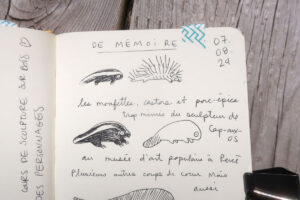 COURS DE SCULPTURE SUR BOIS
DES PERSONNAGES
DE MÉMOIRE
07.
08.
24
les mouffettes, castors et porc-épics
trop mimis du sculpteur de
Cap-aux-
OS
au musée d'art populaire à Percé
Plusieurs autres coups de coeur Mais
aussi